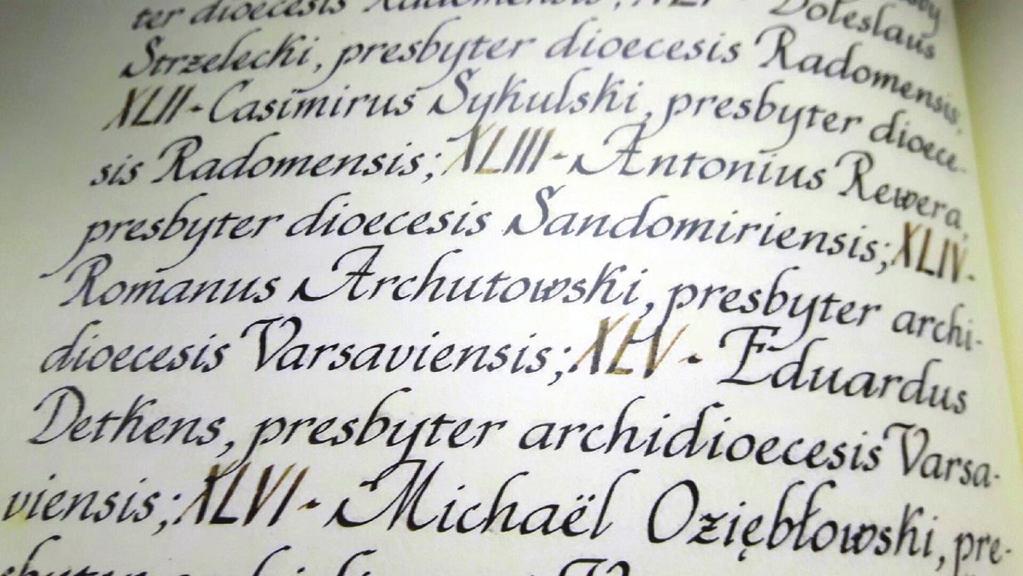 ter dioecesis Radomensis; XLI - Boleslaus
Strzelecki, presbyter dioecesis Radomensis,
XLII - Casimirus Sykulski, presbyter dioece-
sis Radomensis; XLIII - Antonius Rewera,
presbyter dioecesis Sandomiriensis; XLIV -
Romanus Archutowski, presbyter archi-
dioecesis Varsaviensis; XLV - Eduardus
Detkens, presbyter archidioecesis Varsa-
viensis; XLVI - Michaël Oziębłowski, pre-